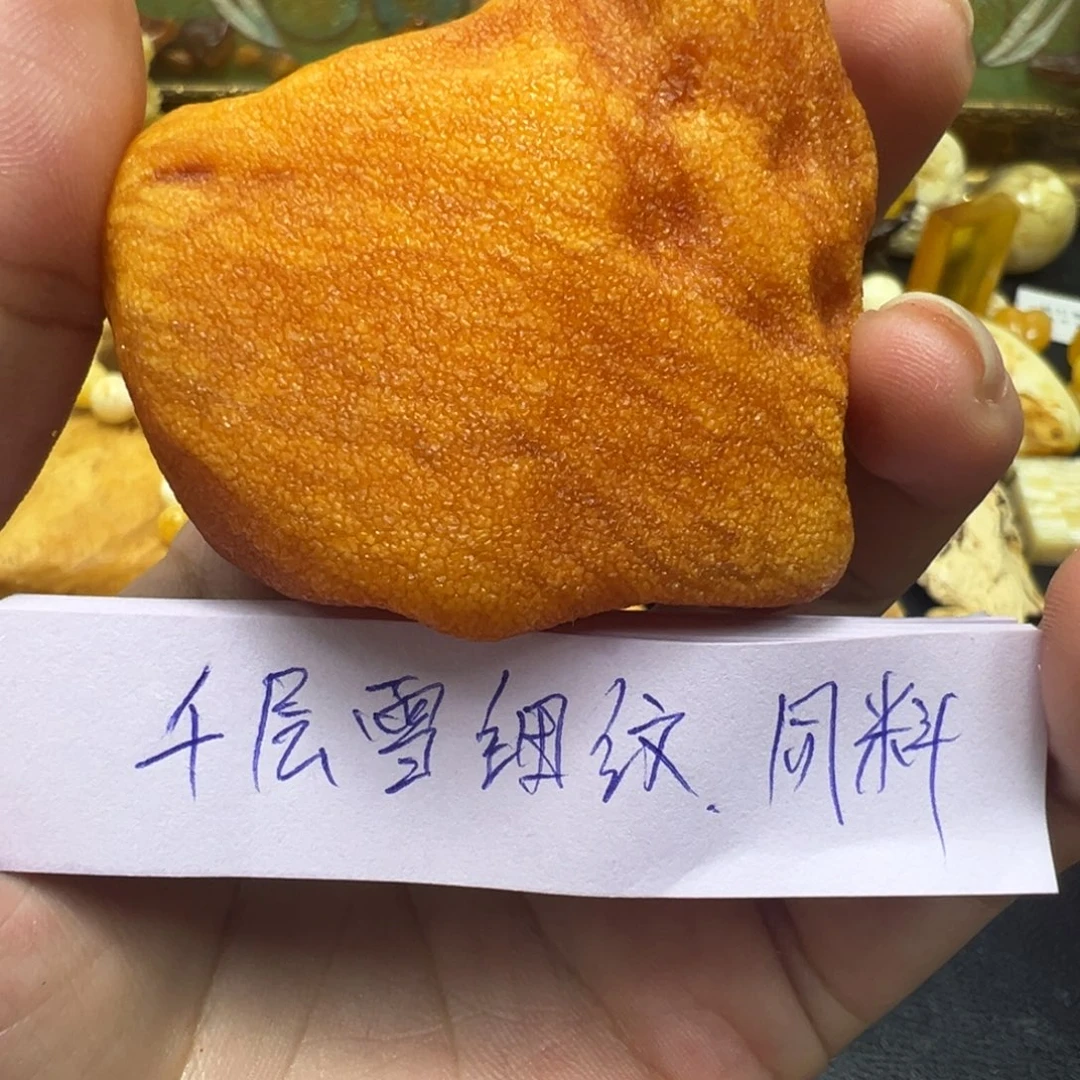 千层雪细纹.同料